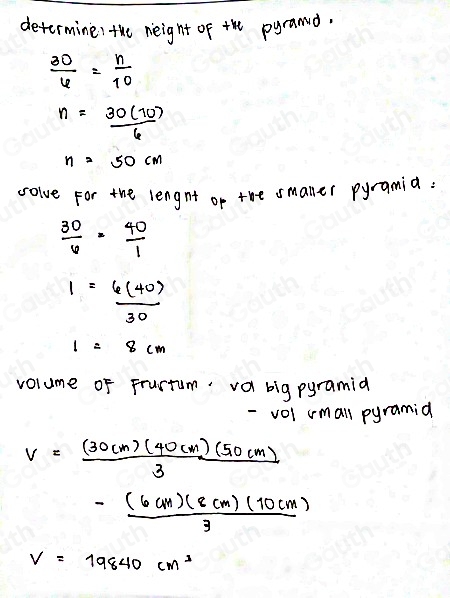 determine: the height of the pyramid.
30/6 = h/10
h = 30(10)/6
h = 50 cm
solve for the lenght of the smaller pyramid:
30/6 = 40/l
l = 6(40)/30
l = 8 cm
volume of Frustum = vol big pyramid
- vol small pyramid
V = (30cm)(40cm)(50cm)/3
- (6cm)(8cm)(10cm)/3
V = 19840 cm³
Gauth